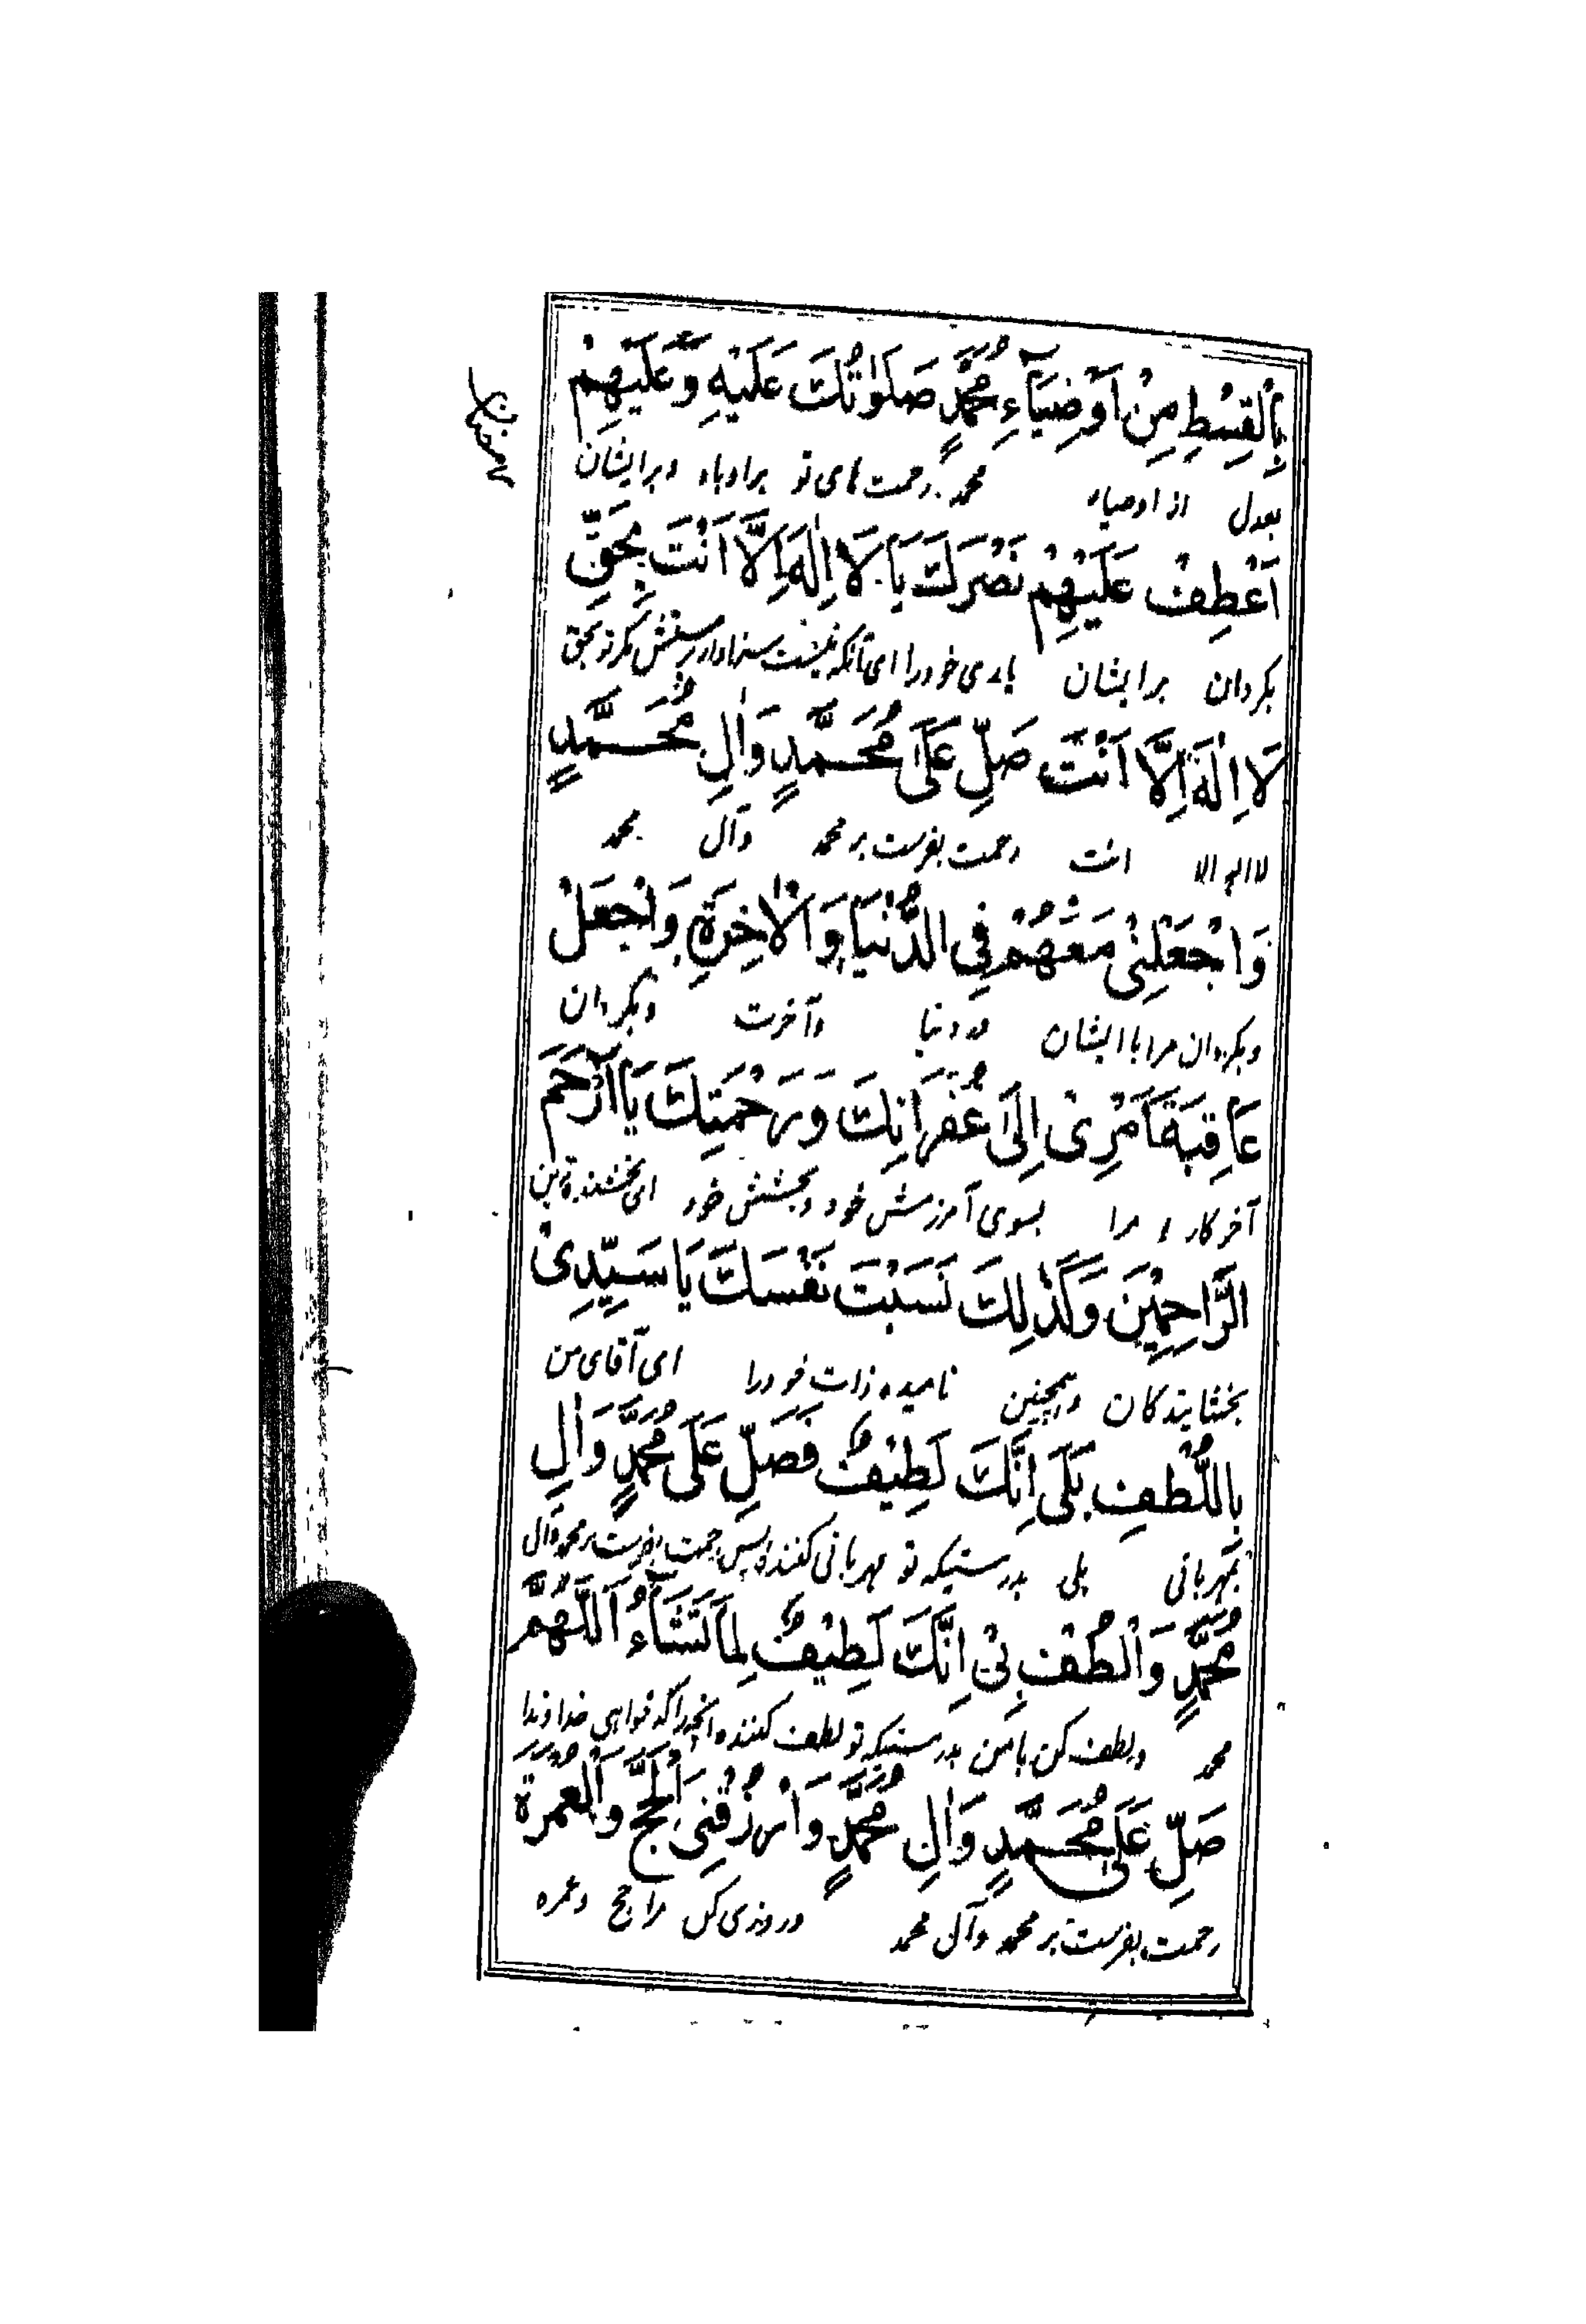 بِالْقِسْطِ مِنْ اَوْصِيَآءِ مُحَمَّدٍ صَلَوٰاتُكَ عَلَيْهِ وَعَلَيْهِمْ
بعدل از اوصیاء محمد رحمت های تو بر او باد و بر ایشان
اَعْطِفْ عَلَيْهِمْ نَصْرَكَ يَا لَا اِلٰهَ اِلَّا اَنْتَ بِحَقِّ
بکردان بر ایشان یاری خود را ای آنکه نیست سزاوار پرستش مکر تو بحق
لَا اِلٰهَ اِلَّا اَنْتَ صَلِّ عَلَى مُحَمَّدٍ وَاٰلِ مُحَمَّدٍ
لا اله الا انت رحمت بفرست بر محمد و آل محمد
وَاجْعَلْنِىْ مَعَهُمْ فِى الدُّنْيَا وَالْاٰخِرَةِ وَاجْعَلْ
و بکردان مرا با ایشان در دنیا و آخرت و بکردان
عَاقِبَةَ اَمْرِىْ اِلَى غُفْرَانِكَ وَرَحْمَتِكَ يَا اَرْحَمَ
آخر کار مرا بسوی آمرزش خود و بخشش خود ای بخشنده ترین
الرَّاحِمِيْنَ وَكَذٰلِكَ نَسَبْتَ نَفْسَكَ يَا سَيِّدِىْ
بخشایندکان و همچنین نامیده ذات خود را ای آقای من
بِاللُّطْفِ بَلَى اِنَّكَ لَطِيْفٌ فَصَلِّ عَلَى مُحَمَّدٍ وَاٰلِ
بمهربانی بلی بدرستیکه تو مهربانی کننده پس رحمت بفرست بر محمد و آل
مُحَمَّدٍ وَالْطُفْ بِىْ اِنَّكَ لَطِيْفٌ لِمَا تَشَآءُ اَللّٰهُمَّ
محمد و لطف کن با من بدرستیکه تو لطف کننده آنچه را که خواهی خداوندا
صَلِّ عَلَى مُحَمَّدٍ وَاٰلِ مُحَمَّدٍ وَارْزُقْنِى الْحَجَّ وَالْعُمْرَةَ
رحمت بفرست بر محمد و آل محمد و روزی کن مرا حج و عمره